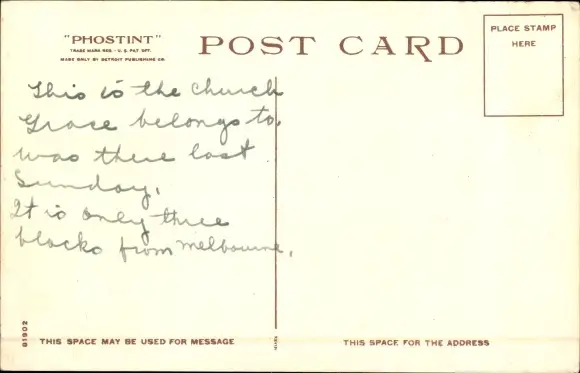 "PHOSTINT"
TRADE MARK REG. - U. S. PAT OFF.
MADE ONLY BY DETROIT PUBLISHING CO.
POST CARD
PLACE STAMP
HERE
This is the church
Grace belongs to.
was there last
Sunday.
It is only three
blocks from Melbourne.
81802
THIS SPACE MAY BE USED FOR MESSAGE
THIS SPACE FOR THE ADDRESS